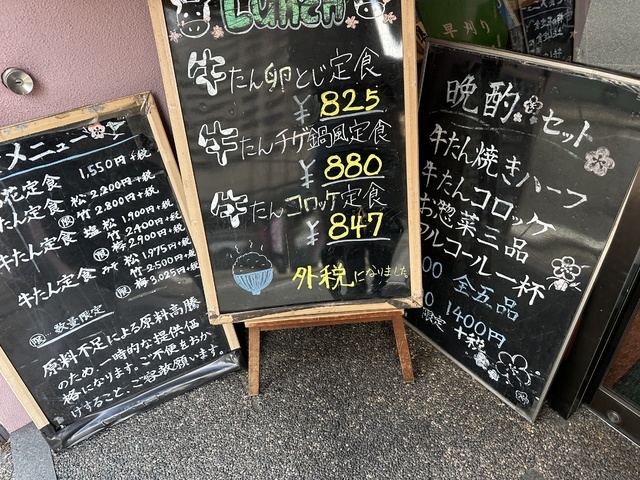 メニュー
花定食 1,550円+税
たん定食 松 2,200円+税
限 竹 2,800円+税
牛たん定食 塩 松 1,900円+税
竹 2,400円+税
限 梅 2,900円+税
牛たん定食 みそ 松 1,975円+税
竹 2,500円+税
限 梅 3,025円+税
限 数量限定
原料不足による原料高騰
のため、一時的な提供価
格になります。ご不便をおか
けすること、ご容赦願います。
Lunch
牛たん卵とじ定食
¥825
牛たんチゲ鍋風定食
¥880
牛たんコロッケ定食
¥847
外税になりました
早刈り
晩酌セット
牛たん焼きハーフ
牛たんコロッケ
お惣菜三品
アルコール一杯
00 全五品
0 1400円
限定 +税